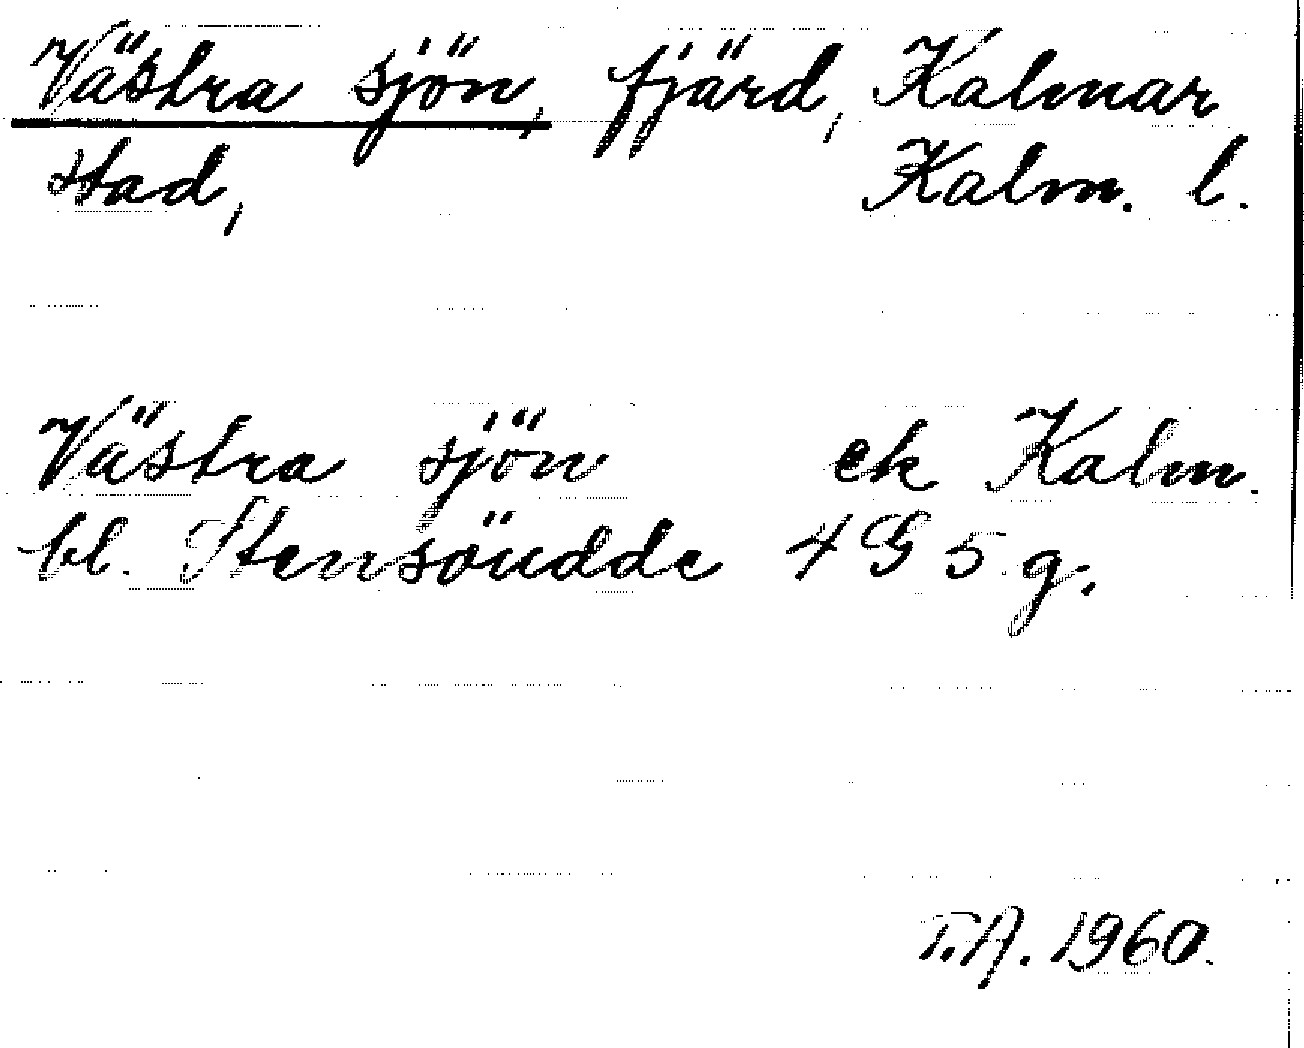 Västra sjön, fjärd, Kalmar
stad, Kalm. l.
Västra sjön ek Kalm.
bl. Stensöudde 4 G 5 g.
T.A. 1960.